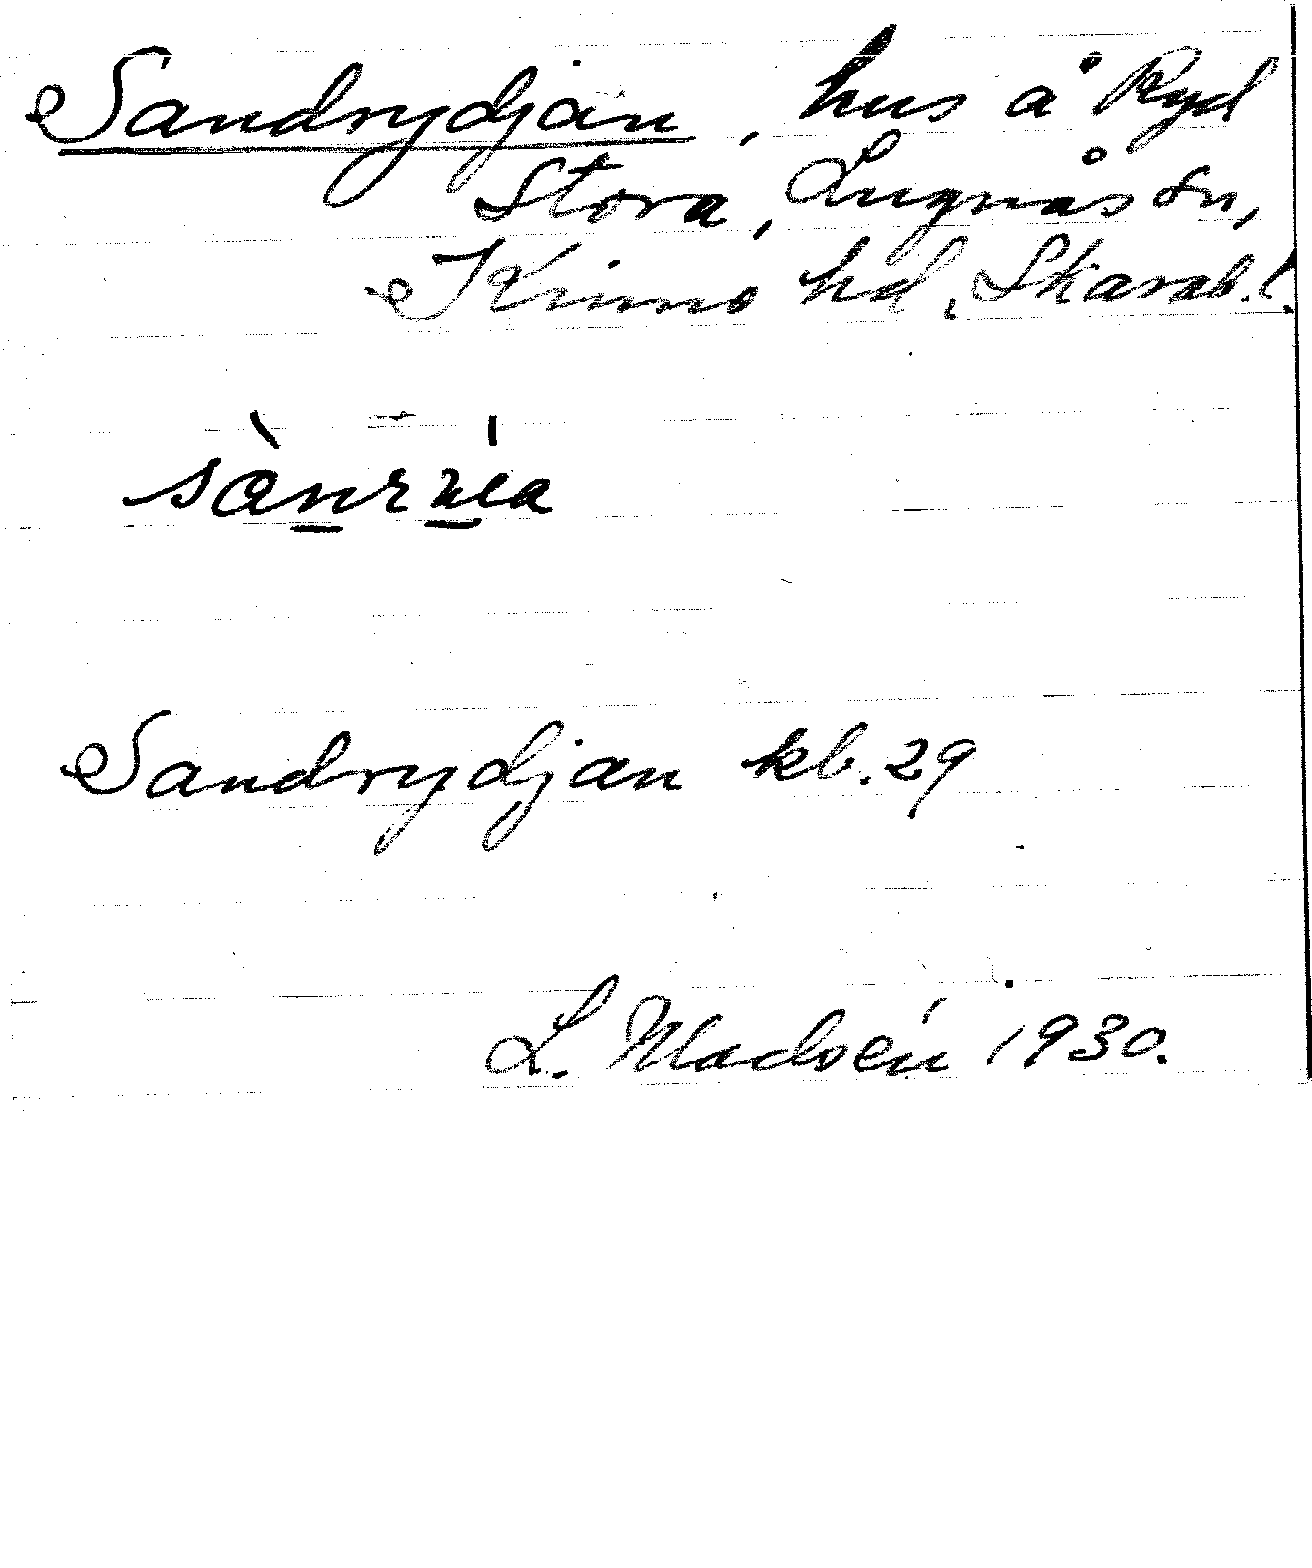 Sandrydjan, hus å Ryd
Stora, Lugnås sn,
Kinne hd, Skarab. l.
Sandrydjan kb. 29
L. Madsén 1930.